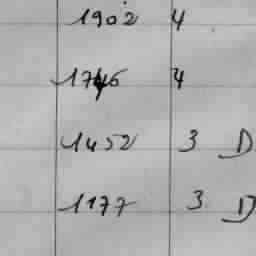 1902 4
1746 4
1452 3 D
1177 3 D